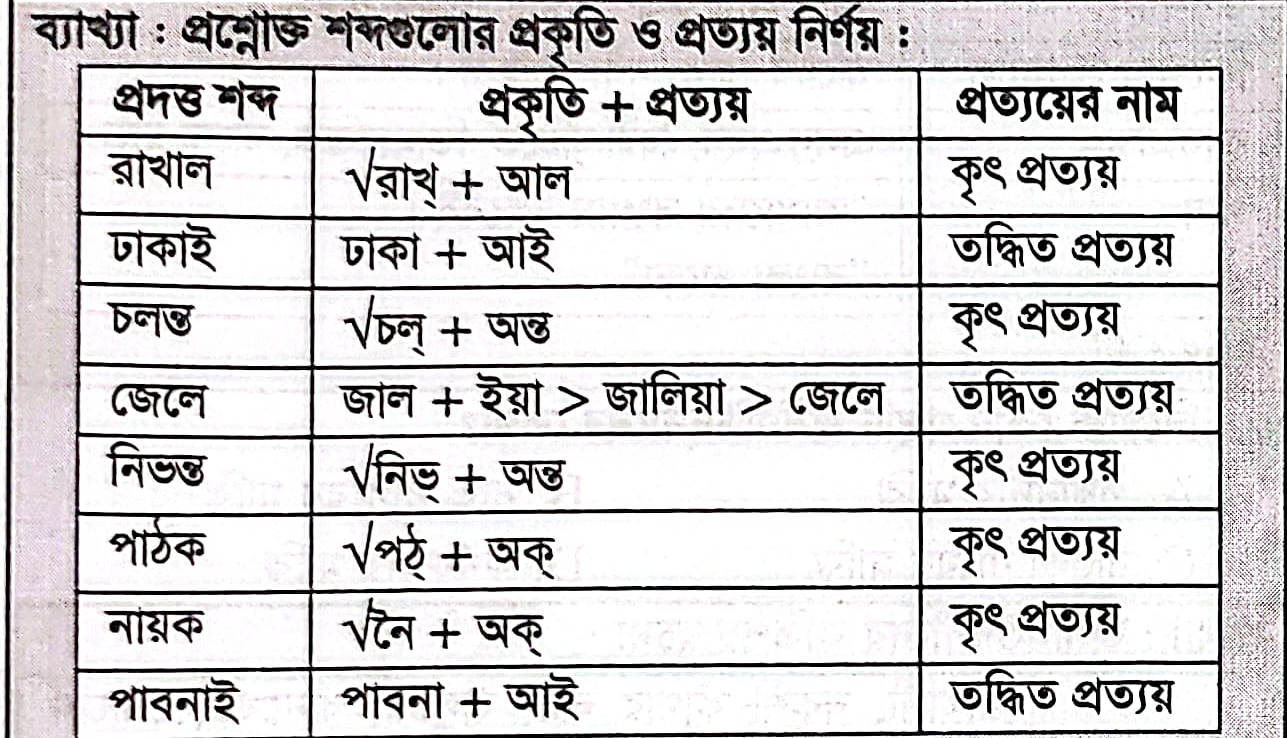 ব্যাখ্যা : প্রশ্নোক্ত শব্দগুলোর প্রকৃতি ও প্রত্যয় নির্ণয় :
প্রদত্ত শব্দ প্রকৃতি + প্রত্যয় প্রত্যয়ের নাম
রাখাল √রাখ্ + আল কৃৎ প্রত্যয়
ঢাকাই ঢাকা + আই তদ্ধিত প্রত্যয়
চলন্ত √চল্ + অন্ত কৃৎ প্রত্যয়
জেলে জাল + ইয়া > জালিয়া > জেলে তদ্ধিত প্রত্যয়
নিভন্ত √নিভ্ + অন্ত কৃৎ প্রত্যয়
পাঠক √পঠ্ + অক্ কৃৎ প্রত্যয়
নায়ক √নৈ + অক্ কৃৎ প্রত্যয়
পাবনাই পাবনা + আই তদ্ধিত প্রত্যয়